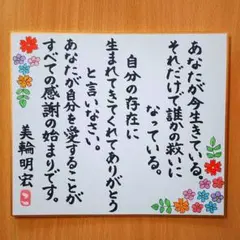 あなたが今生きている。
それだけで誰かの救いに
なっている。
自分の存在に
生まれてきてくれてありがとう
と言いなさい。
あなたが自分を愛することが
すべての感謝の始まりです。
美輪明宏